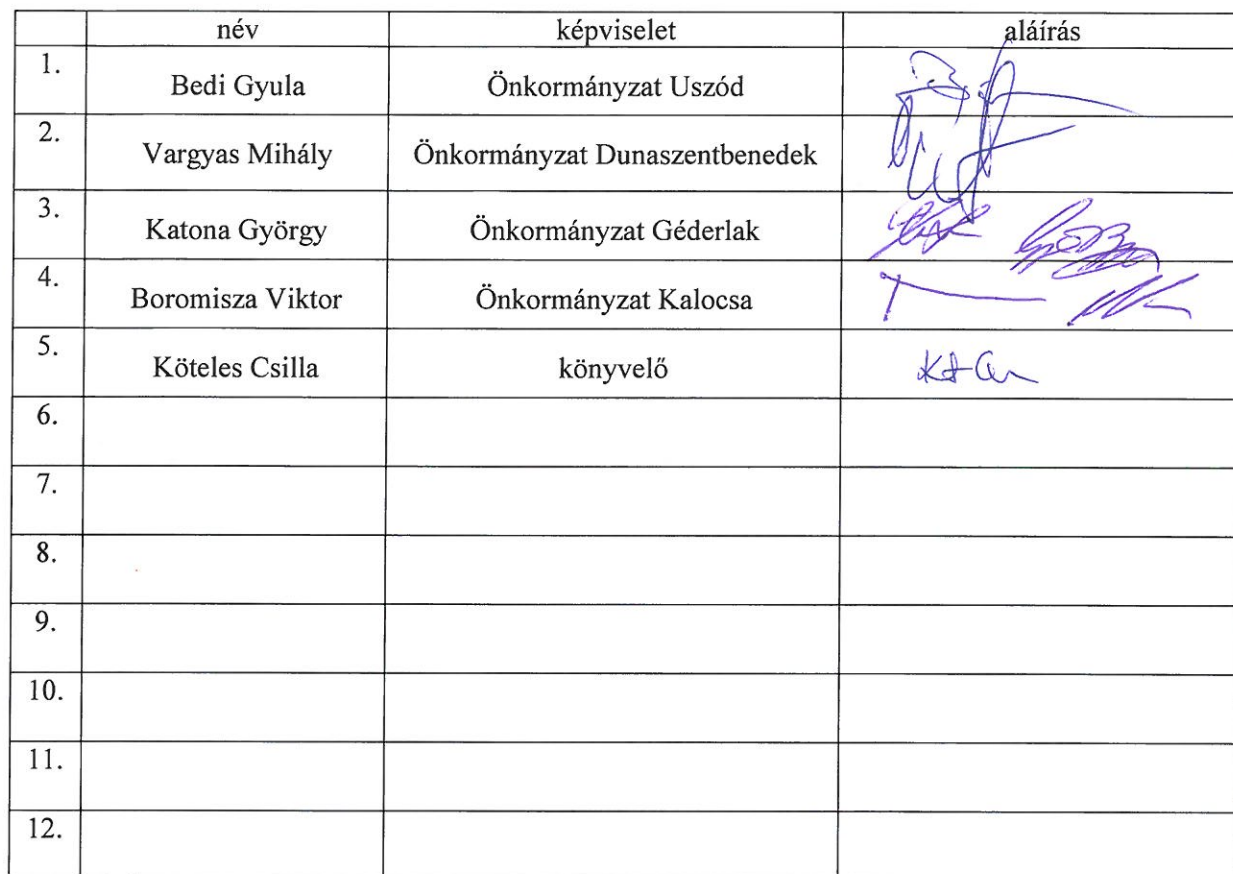 név képviselet aláírás
1. Bedi Gyula Önkormányzat Uszód
2. Vargyas Mihály Önkormányzat Dunaszentbenedek
3. Katona György Önkormányzat Géderlak
4. Boromisza Viktor Önkormányzat Kalocsa
5. Köteles Csilla könyvelő
6.
7.
8.
9.
10.
11.
12.